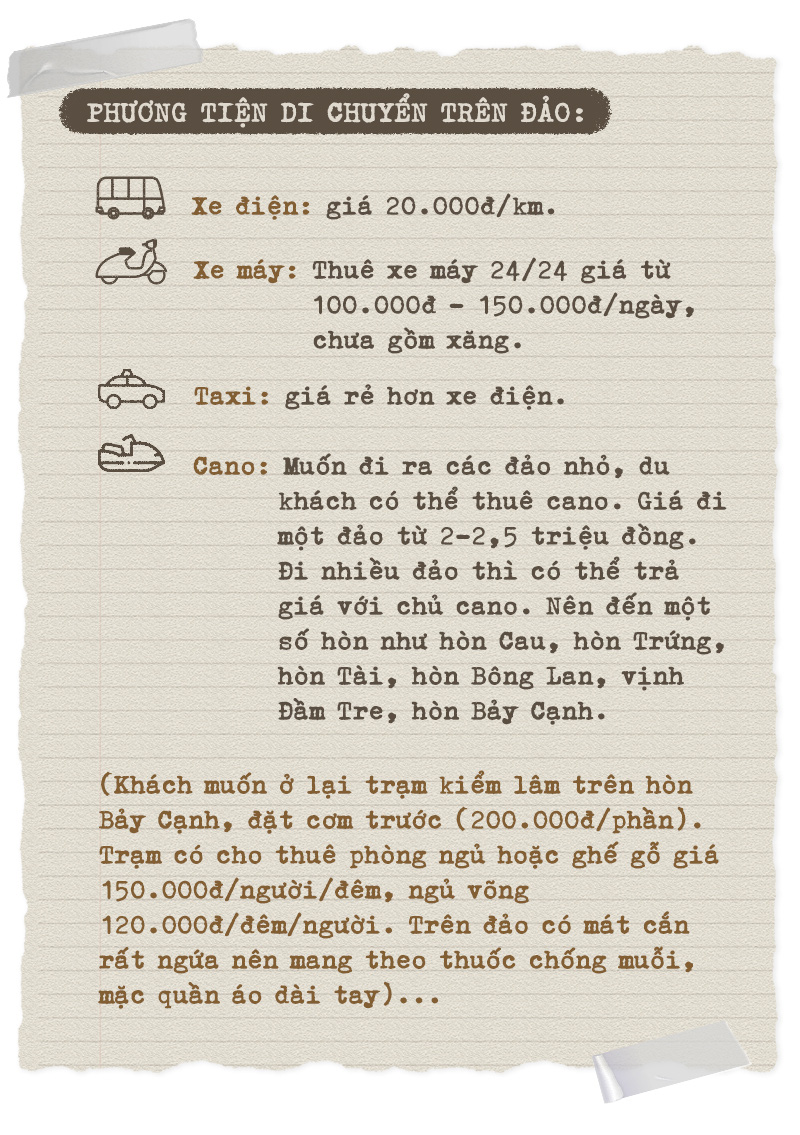 PHƯƠNG TIỆN DI CHUYỂN TRÊN ĐẢO:
Xe điện: giá 20.000đ/km.
Xe máy: Thuê xe máy 24/24 giá từ
100.000đ - 150.000đ/ngày,
chưa gồm xăng.
Taxi: giá rẻ hơn xe điện.
Cano: Muốn đi ra các đảo nhỏ, du
khách có thể thuê cano. Giá đi
một đảo từ 2-2,5 triệu đồng.
Đi nhiều đảo thì có thể trả
giá với chủ cano. Nên đến một
số hòn như hòn Cau, hòn Trứng,
hòn Tài, hòn Bông Lan, vịnh
Đầm Tre, hòn Bảy Cạnh.
(Khách muốn ở lại trạm kiểm lâm trên hòn
Bảy Cạnh, đặt cơm trước (200.000đ/phần).
Trạm có cho thuê phòng ngủ hoặc ghế gỗ giá
150.000đ/người/đêm, ngủ võng
120.000đ/đêm/người. Trên đảo có mát cắn
rất ngứa nên mang theo thuốc chống muỗi,
mặc quần áo dài tay)...